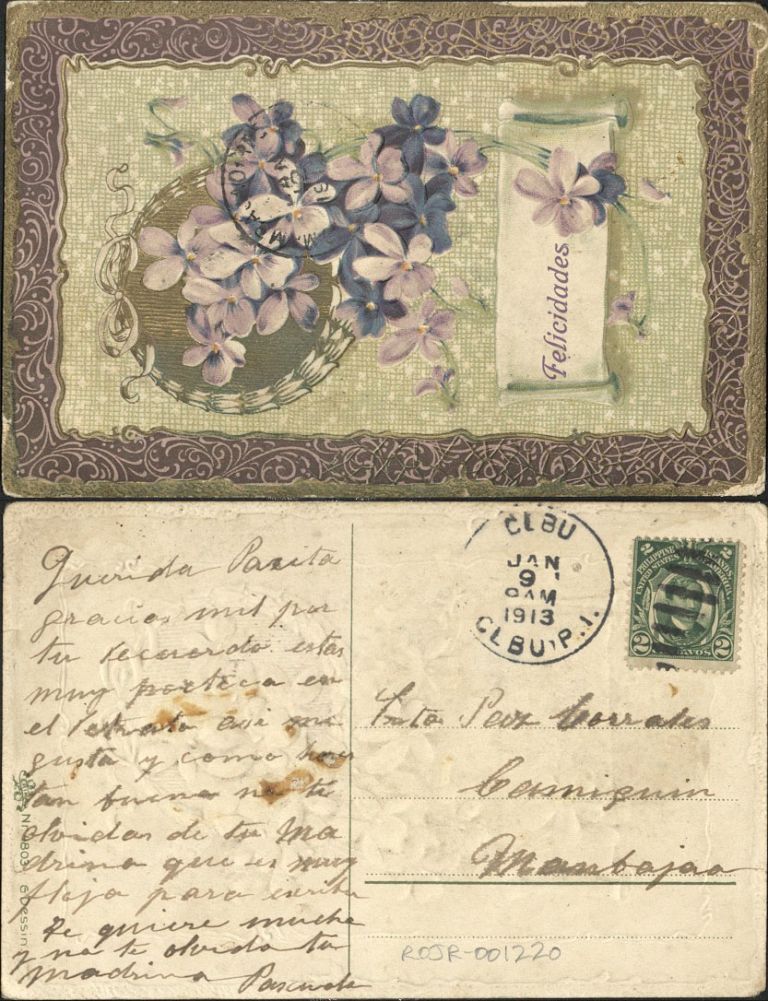 Felicidades
Querida Pacita
gracias mil por
tu recuerdo estas
muy poetica en
el retrato asi me
gusta y como eres
tan buena no te
olvidas de tu Ma
drina que es muy
floja para escribir
Te quiere mucho
y no te olvida tu
Madrina Pascuala
CEBU
JAN
9
1913
CEBU P.I.
2 PHILIPPINE ISLANDS 2
UNITED STATES OF AMERICA
2 CENTAVOS 2
Srta Paz Corrales
Camiguin
Mambajao
6 Dessin
ROJR-001220